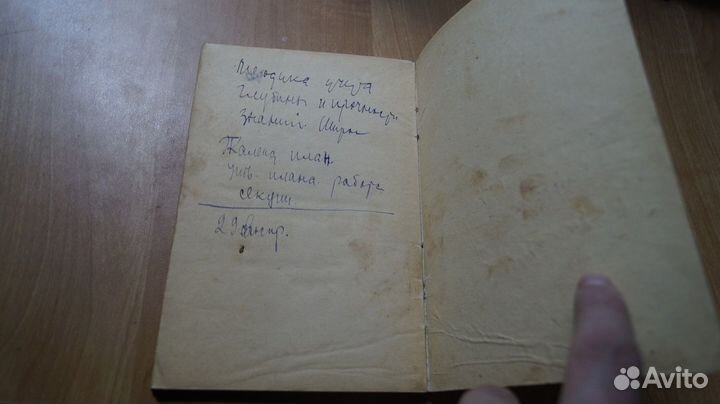 Методика учета
глубины и прочности
знаний.
Календ план
утв. плана работы
секции
29
Avito